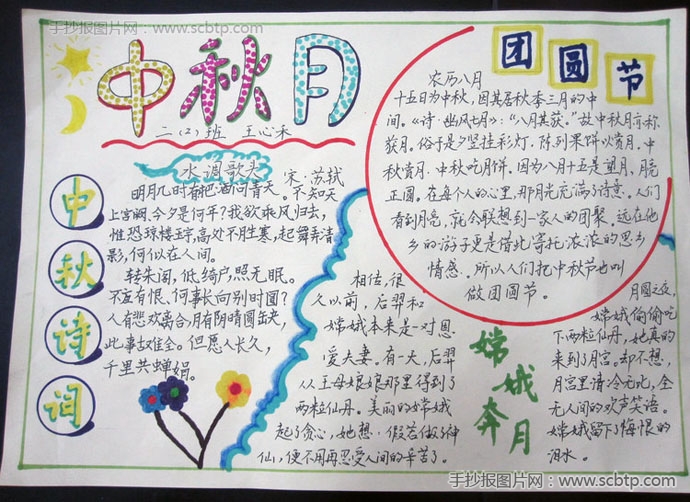 手抄报图片网：www.scbtp.com
中秋月
二(2)班 王心禾
水调歌头
宋·苏轼
明月几时有把酒问青天。不知天
上宫阙，今夕是何年？我欲乘风归去，
惟恐琼楼玉宇，高处不胜寒，起舞弄清
影，何似在人间。
转朱阁，低绮户照无眠。
不应有恨、何事长向别时圆？
人有悲欢离合，月有阴晴圆缺，
此事古难全。但愿人长久，
千里共婵娟。
中
秋
诗
词
团圆节
农历八月
十五日为中秋，因其居秋季三月的中
间。《诗·豳风七月》：“八月其获。”故中秋月亦称
获月。俗子是夕竖挂彩灯，陈列果饼以赏月。中
秋赏月、中秋吃月饼。因为八月十五是望月，月亮
正圆。在每个人的心里，那月光充满了诗意。人们
看到月亮，就会联想到一家人的团聚。远在他
乡的游子更是借此寄托浓浓的思乡
情感。所以人们把中秋节也叫
做团圆节。
相传，很
久以前，后羿和
嫦娥本来是一对恩
爱夫妻。有一天，后羿
从王母娘娘那里得到了
两粒仙丹。美丽的嫦娥
起了贪心，她想：假若做了神
仙，便不用再忍受人间的辛苦了。
嫦娥
奔月
月圆之夜，
嫦娥偷偷吃
下两粒仙丹，她真的
来到了月宫。却不想，
月宫里清冷无比，全
无人间的欢声笑语。
嫦娥留下了悔恨的
泪水。
手抄报图片网：www.scbtp.com